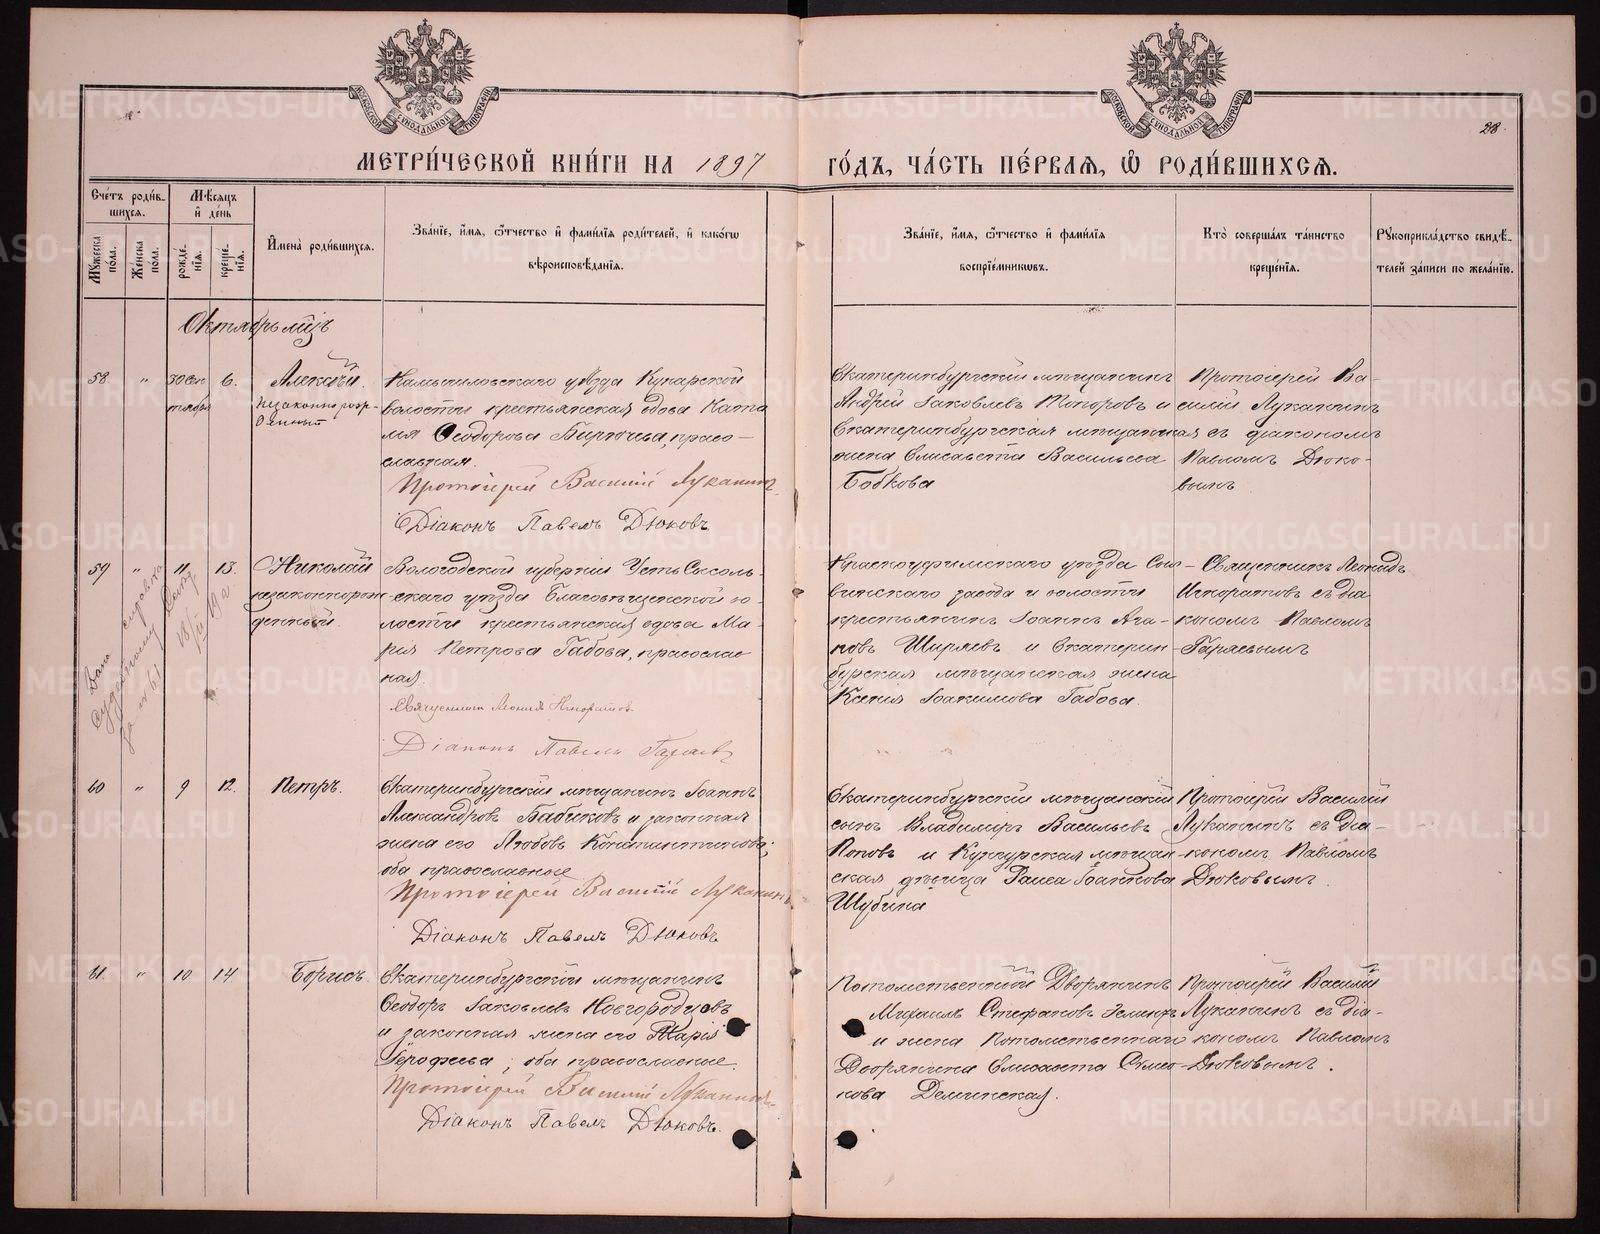 28.
МЕТРИ́ЧЕСКОЙ КНИ́ГИ НА 1897 ГО́ДЪ, ЧА́СТЬ ПЕ́РВАЯ, Ѿ РОДИ́ВШИХСЯ.
Сче́тъ роди́в-
шихся.
Му́жеска по́ла.
Же́нска по́ла.
Мѣ́сяцъ
и де́нь
рожде́-
нїя.
креще́-
нїя.
Имена̀ роди́вшихся.
Зва́нїе, и́мя, ѻ́тчество и фами́лїя роди́телей, и како́гѡ
вѣроисповѣ́данїя.
Зва́нїе, и́мя, ѻ́тчество и фами́лїя
воспрїе́мникѡвъ.
Кто̀ соверша́лъ та́инство
креще́нїя.
Рꙋкоприкла́дство свидѣ́-
телей за́писи по жела́нїю.
Октябрь мцъ
58. " 30 Сен- 6. Алексѣй.
тября
незаконнорож-
денный
Камышловскаго уѣзда Кунарской
волости крестьянская вдова Ката
Ѳеодорова Бирючева, право-
славная.
Протоіерей Василій Луканинъ
Діаконъ Павелъ Дюковъ
Екатеринбургскій мѣщанинъ
Андрей Іаковлевъ Топоровъ и
Екатеринбургская мѣщанская
жена Елисавета Васильева
Бобкова
Протоіерей Ва-
силій Луканинъ
съ діакономъ
Павломъ Дюко-
вымъ
59 " 11. 13. Николай
незаконнорож-
денный.
Вологодской губерніи Усть Сысоль-
скаго уѣзда Благовѣщенской во-
лости крестьянская вдова Ма-
рія Петрова Габова, православ
ная.
Священникъ Леонидъ Игноратовъ
Діаконъ Павелъ Гаряевъ
Красноуфимскаго уѣзда Сы-
винскаго завода и волости
крестьянинъ Іоаннъ
Ширяевъ и Екатерин-
бурская мѣщанская жена
Ксенія Іоакимова Габова.
Священникъ Леонидъ
Игноратовъ съ діа
кономъ Павломъ
Гаряевымъ
Дано
60 " 9 12. Петръ.
Екатеринбургскій мѣщанинъ Іоаннъ
Александровъ Бабиковъ и законная
жена его Любовь Константинова;
оба православные
Протоіерей Василій Луканинъ
Діаконъ Павелъ Дюковъ
Екатеринбургскій мѣщанскій
сынъ Владиміръ Васильевъ
Поповъ и Кунгурская мѣщан-
ская дѣвица Раиса Іоаннова
Шубина
Протоіерей Василій
Луканинъ съ діа-
кономъ Павломъ
Дюковымъ.
61. " 10 14 Борисъ.
Екатеринбургскій мѣщанинъ
Ѳеодоръ Іаковлевъ Новгородцовъ
и законная жена его Марія
Ерофеева; оба православные.
Протоіерей Василій Луканинъ
Діаконъ Павелъ Дюковъ.
Потомственный Дворянинъ
Михаилъ Стефановъ
и жена Потомственнаго
Дворянина Елисавета Симео-
нова Деминская.
Протоіерей Василій
Луканинъ съ діа-
кономъ Павломъ
Дюковымъ.